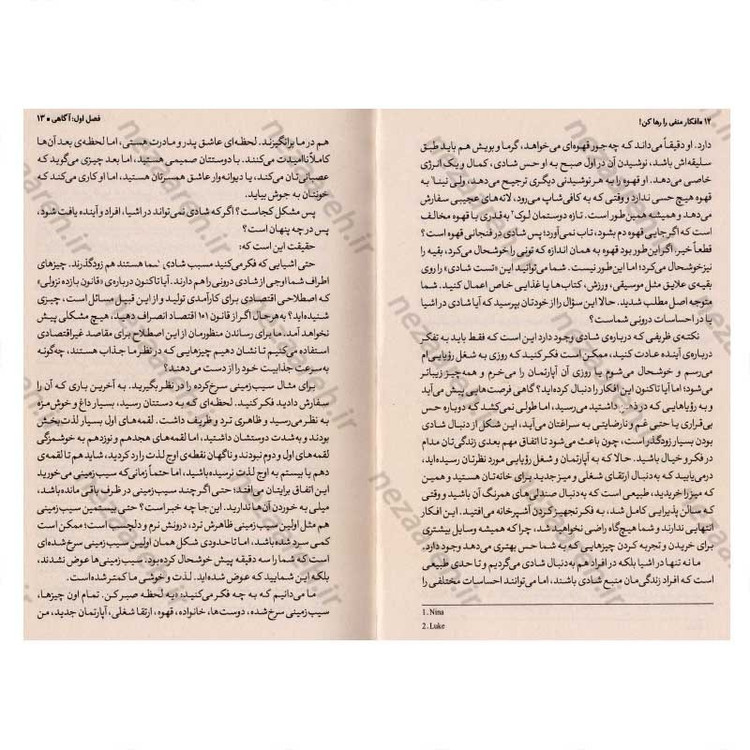 ۱۲ • افکار منفی را رها کن!
دارد. او دقیقاً می‌داند که چه‌جور قهوه‌ای می‌خواهد، گرما و بویش هم باید طبق
سلیقه‌اش باشد، نوشیدن آن در اول صبح به او حس شادی، کمال و یک انرژی
خاصی می‌دهد. او قهوه را به هر نوشیدنی دیگری ترجیح می‌دهد، ولی نینا¹ به
قهوه هیچ حسی ندارد و وقتی که به کافی‌شاپ می‌رود، لاته‌های عجیبی سفارش
می‌دهد و همیشه همین‌طور است. تازه دوستمان لوک² به قدری با قهوه مخالف
است که اگر جایی قهوه دم بشود، تاب نمی‌آورد؛ پس آیا شادی در فنجانی قهوه است؟
قطعاً خیر. اگر این‌طور بود قهوه به همان اندازه که تونی را خوشحال می‌کرد، بقیه را
نیز خوشحال می‌کرد؛ اما این‌طور نیست. شما می‌توانید این «تست شادی» را روی
بقیه‌ی علایق مثل موسیقی، ورزش، کتاب‌ها یا غذایی خاص اعمال کنید.
متوجه اصل مطلب شدید. حالا این سؤال را از خودتان بپرسید که آیا شادی در اشیا
یا در احساسات درونی شماست؟
نکته‌ی ظریفی که درباره‌ی شادی وجود دارد این است که فقط باید به تفکر
درباره‌ی آینده عادت کنید، ممکن است فکر کنید که روزی به شغل رؤیایی‌ام
می‌رسم و خوشحال می‌شوم یا روزی آن آپارتمان را می‌خرم و همه‌چیز زیباتر
می‌شود؛ اما آیا تاکنون این افکار را دنبال کرده‌اید؟ گاهی فرصت‌هایی پیش می‌آید
و به رؤیاهایی که در ذهن داشتید می‌رسید، اما طولی نمی‌کشد که دوباره حس
بی‌قراری یا حتی غم و نارضایتی به سراغتان می‌آید، این شکل از دنبال شادی
بودن بسیار زودگذر است، چون باعث می‌شود تا اتفاق مهم بعدی زندگی‌تان مدام
در فکر و خیال باشید. حالا که به آپارتمان و شغل رؤیایی مورد نظرتان رسیده‌اید،
درمی‌یابید که به‌دنبال ارتقای شغلی و میز جدید برای خانه‌تان هستید؛ و همین
که میز را خریدید، طبیعی است که به‌دنبال صندلی‌های همرنگ آن باشید و وقتی
که سالن پذیرایی کامل شد، به فکر تجهیز کردن آشپزخانه می‌افتید. این افکار
انتهایی ندارند و شما هیچ‌گاه راضی نخواهید شد، چرا که همیشه وسایل بیشتری
برای خریدن و تجربه کردن چیزهایی که به شما حس بهتری می‌دهد وجود دارد.
ما نه تنها در اشیا بلکه در افراد هم به‌دنبال شادی می‌گردیم و تا حدی طبیعی
است که افراد زندگی‌مان منبع شادی باشند، اما می‌توانند احساسات مختلفی را
1. Nina
2. Luke
فصل اول: آگاهی • ۱۳
هم در ما برانگیزند. لحظه‌ای عاشق پدر و مادرت هستی، اما لحظه‌ی بعد آن‌ها
کاملاً ناامیدت می‌کنند. با دوستتان صمیمی هستید، اما بعد چیزی می‌گوید که
عصبانی‌تان می‌کند، یا دیوانه‌وار عاشق همسرتان هستید، اما او کاری می‌کند که
خونتان به جوش بیاید.
پس مشکل کجاست؟ اگر که شادی نمی‌تواند در اشیا، افراد و آینده یافت شود،
پس در چه پنهان است؟
حقیقت این است که:
حتی اشیایی که فکر می‌کنید مسبب شادی شما هستند هم زودگذرند. چیزهای
اطراف شما اوجی از شادی درونی را هم دارند. آیا تاکنون درباره‌ی «قانون بازده نزولی»
که اصطلاحی اقتصادی برای کارآمدی تولید و از این قبیل مسائل است، چیزی
شنیده‌اید؟ به‌هرحال اگر از قانون ۱۰۱ اقتصاد انصراف دهید، هیچ مشکلی پیش
نخواهد آمد. ما برای رساندن منظورمان از این اصطلاح برای مقاصد غیراقتصادی
استفاده می‌کنیم تا نشان دهیم چیزهایی که در نظر ما جذاب هستند، چه‌گونه
به سرعت جذابیت خود را از دست می‌دهند؟
برای مثال سیب‌زمینی سرخ‌کرده را در نظر بگیرید. به آخرین باری که آن را
سفارش دادید فکر کنید. لحظه‌ای که به دستتان رسید، بسیار داغ و خوش‌مزه
به نظر می‌رسید و ظاهری ترد و ظریف داشت. لقمه‌های اول بسیار لذت‌بخش
بودند و به‌شدت دوستشان داشتید، اما لقمه‌های هجدهم و نوزدهم به خوشمزگی
لقمه‌های اول و دوم نبودند و ناگهان نقطه‌ی اوج لذت را رد کردید، شاید هم تا لقمه‌ی
دهم یا بیستم به اوج لذت نرسیده باشید، اما حتماً زمانی‌که سیب‌زمینی می‌خورید
این اتفاق برایتان می‌افتد؛ حتی اگر چند سیب‌زمینی در ظرف باقی مانده باشد،
میلی به خوردن آن‌ها ندارید. این‌جا چه خبر است؟ حتی بیستمین سیب‌زمینی
هم مثل اولین سیب‌زمینی ظاهرش ترد، درونش نرم و دلچسب است؛ ممکن است
کمی سرد شده باشد، اما تا حدودی شکل همان اولین سیب‌زمینی سرخ‌شده‌ای
است که شما را سه دقیقه پیش خوشحال کرده بود. سیب‌زمینی‌ها عوض نشدند،
بلکه این شمایید که عوض شده‌اید. لذت و خوشی ما کمتر شده است.
ما می‌دانیم که به چه فکر می‌کنید: «یه لحظه صبر کن. تمام اون چیزها،
سیب‌زمینی سرخ‌شده، دوست‌ها، خانواده، قهوه، ارتقا شغلی، آپارتمان جدید، من
nezaareh.ir